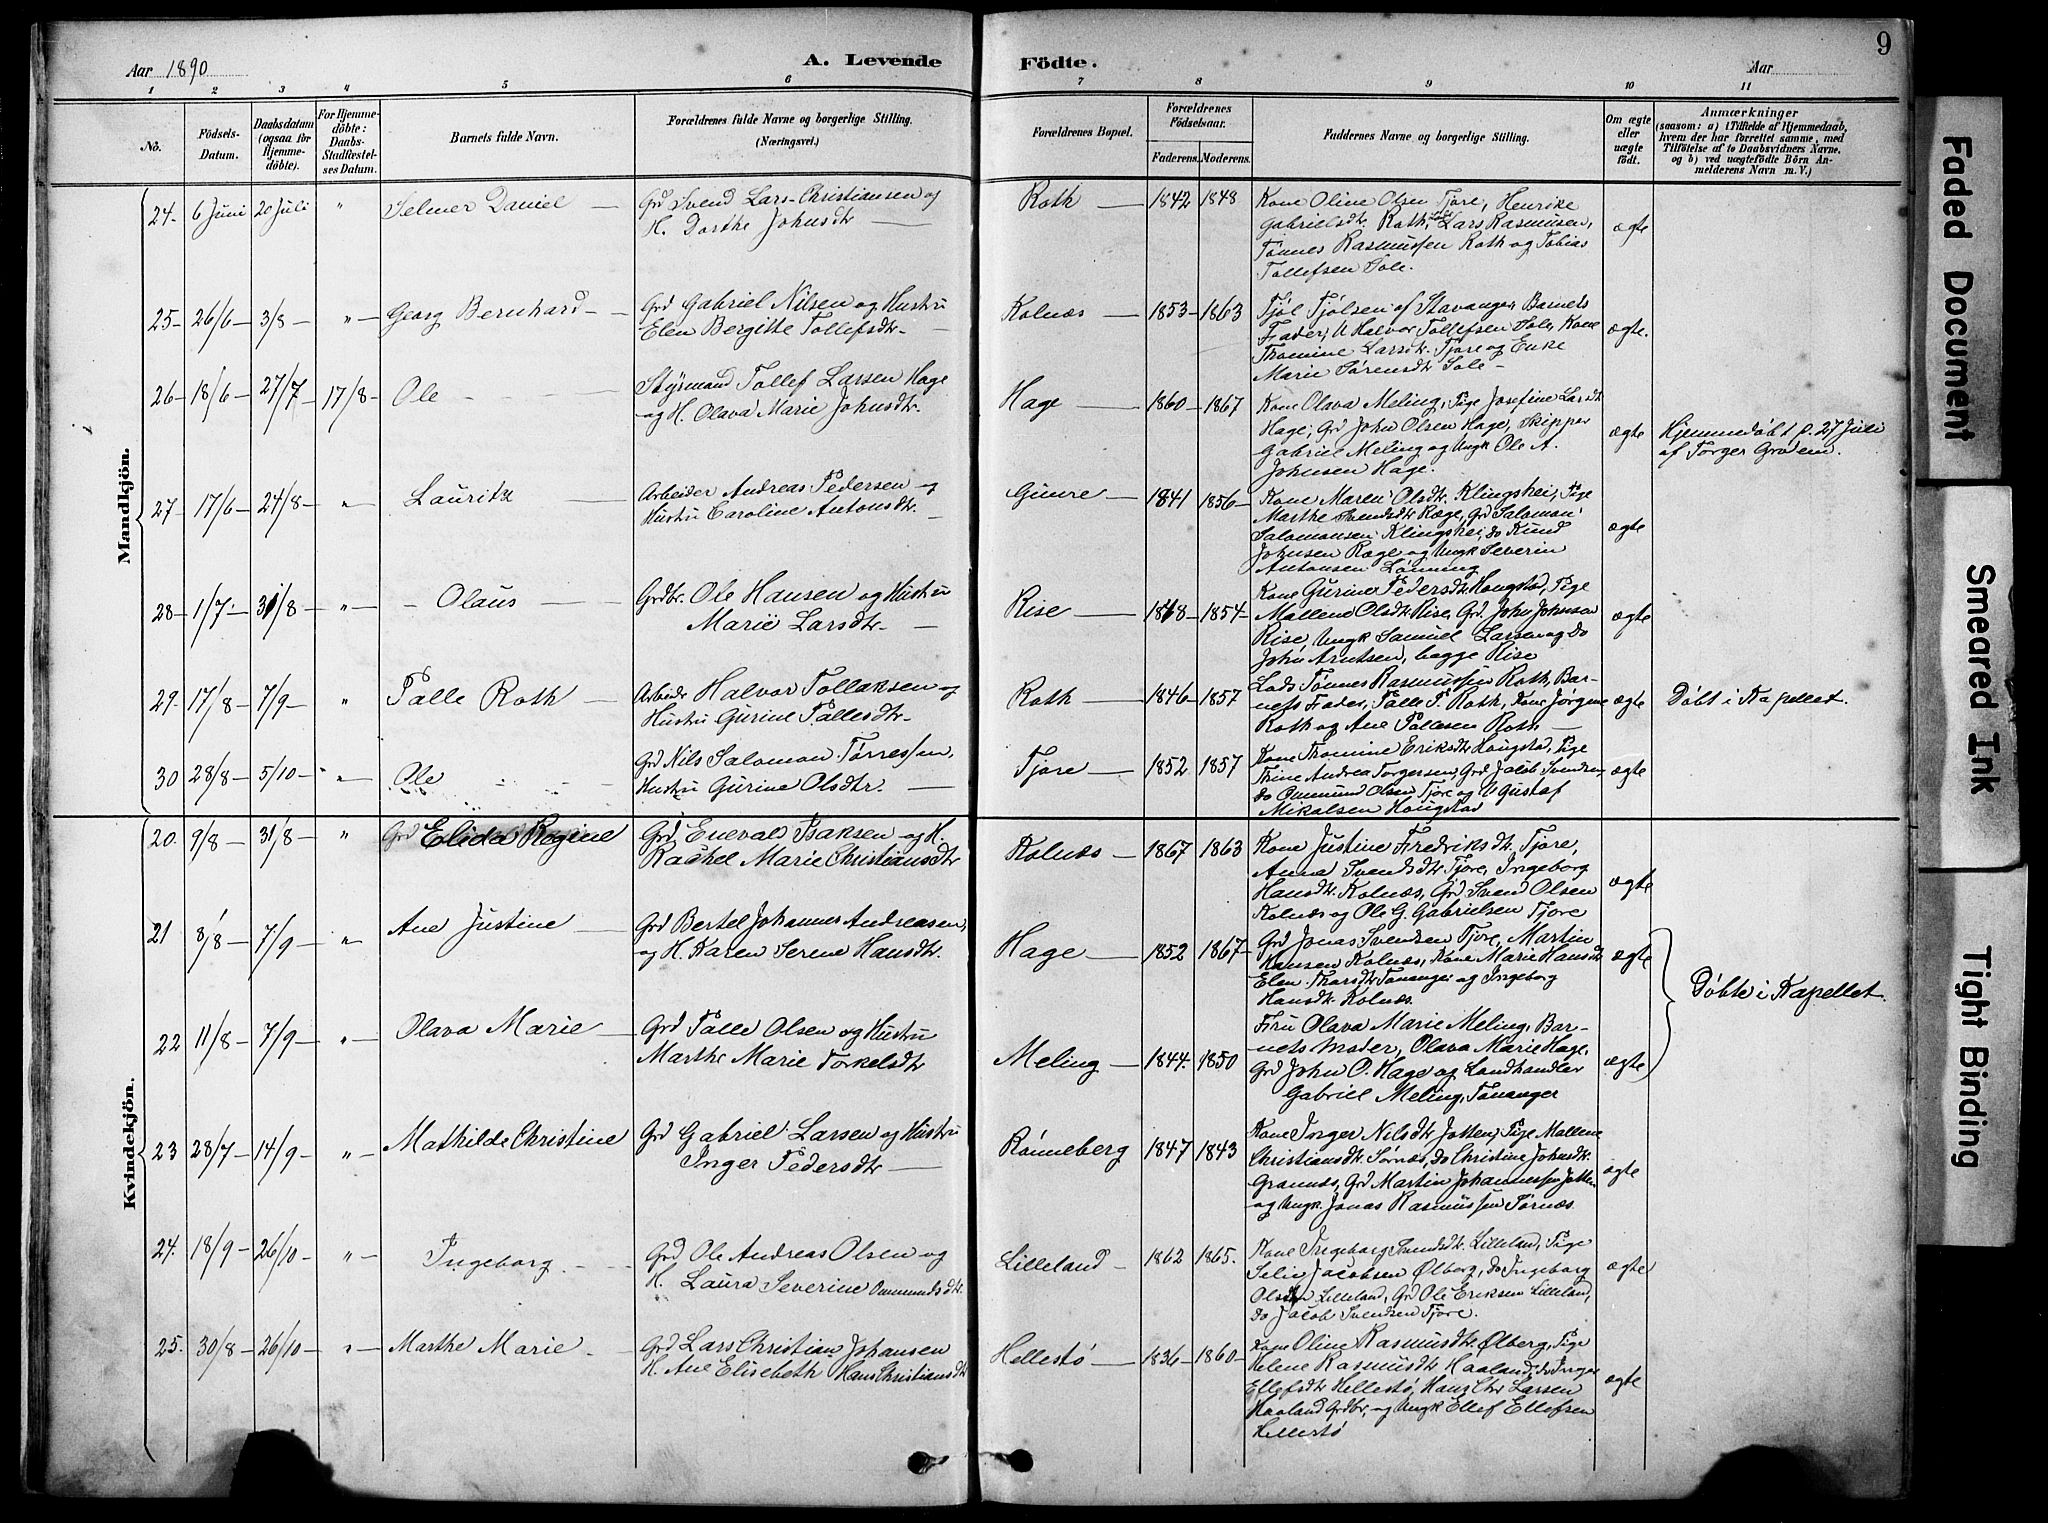 Aar 1890
A. Levende
Födte.
Aar
9
1 2 3 4 5 6 7 8 9 10 11
No.
Födsels-
Datum.
Daabsdatum
(ogsaa for
Hjemme-
döbte).
For Hjemme-
döbte:
Daabs-
Stadfæstel-
ses Datum.
Barnets fulde Navn.
Forældrenes fulde Navne og borgerlige Stilling.
(Næringsvei.)
Forældrenes Bopæl.
Forældrenes
Födselsaar.
Faderens. Moderens.
Faddernes Navne og borgerlige Stilling.
Om ægte
eller
uægte
födt.
Anmærkninger
(saasom: a) i Tilfælde af Hjemmedaab,
hvem der har forrettet samme, med
Tilföielse af to Daabsvidners Navne,
og b) ved uægtefödte Börn An-
melderens Navn m. V.)
Mandkjön.
24. 6 Juni 20 Juli " Selmer Daniel
Grd Svend Lars-Christiansen og
H. Dorthe Johnsdtr
Roth 1842 1848
Kone Oline Olsen Tjore, Henrike
Gabrielsdt. Roth, Lars Rasmusen,
Tønnes Rasmussen Roth og Tobias
Tollefsen Sole.
ægte
25 26/6 3/8 " Georg Bernhard
Grd Gabriel Nilsen og Hustru
Elen Bergitte Tollefsdtr.
Kolnæs 1853 1863
Tjøl Tjølsen af Stavanger, Barnets
Fader, U Halvor Tollefsen Sole, Kone
Tromine Larsdt. Tjore og Enke
Marie Sørensdt Sole
ægte.
26 18/6 27/7 17/8 Ole
Styrmand Tollef Larsen Hage
og H. Olava Marie Johnsdtr.
Hage 1860 1867
Kone Olava Meling, Pige Josefine Larsdt
Hage, Grd John Olsen Hage, Skipper
Gabriel Meling og Ungk Ole A.
Johnsen Hage.
ægte
Hjemmedøbt p. 27 Juli
af Torger Grødem.
27 17/6 24/8 " Lauritz
Arbeider Andreas Pedersen og
Hustru Caroline Antonsdtr.
Gimre 1841 1856
Kone Maren Olsdtr. Klingshei, Pige
Marthe Svendsdtr Ræge, Grd Salomon
Salomonsen Klingshei, do Knud
Johnsen Ræge og Ungk Severin
Antonsen Lønning
ægte
28 1/7 31/8 " Olaus
Grdbr. Ole Hansen og Hustru
Marie Larsdtr.
Rise 1848 1854
Kone Gurine Pedersdtr Hougstad, Pige
Mallene Olsdtr Rise, Grd John Johnsen
Rise, Ungk Samuel Larsen og do
John Arntsen, begge Rise
ægte
29. 17/8 7/9 " Palle Roth
Arbeider Halvor Tollaksen og
Hustru Gurine Pallesdtr.
Roth 1846 1857
Lods Tønnes Rasmussen Roth, Bar-
nets Fader, Palle T. Roth, Kone Jørgine
Roth og Ane Pallesen Roth
ægte
Døbt i Kapellet.
30 28/8 5/10 " Ole
Grd Nils Salomon Tørressen,
Hustru Gurine Olsdtr.
Tjore 1852 1857
Kone Tromine Eriksdtr Hougstad, Pige
Thine Andrea Torgersen, Grd Jacob Svendsen,
do Ommund Olsen Tjore og U Gustaf
Mikalsen Hougstad
ægte
Kvindekjön.
20. 9/8 31/8 " Elida Regine
Grd Eneval Isaksen og H.
Rachel Marie Christiansdtr
Kolnæs 1867 1863
Kone Justine Fredriksdt. Tjore,
Anna Svendsdtr Tjore, Ingeborg
Hansdt. Kolnæs, Grd Svend Olsen
Kolnæs og Ole G. Gabrielsen Tjore
ægte
21 8/8 7/9 " Ane Justine
Grd Bertel Johannes Andreasen,
og H. Karen Serene Hansdtr.
Hage 1852 1867
Grd Jonas Svendsen Tjore, Martin
Hansen Kolnæs, Kone Marie Hansdt
Elen Tharsdtr Tananger og Ingeborg
Hansdt. Kolnæs.
ægte
Døbte i Kapellet.
22 11/8 7/9 " Olava Marie
Grd Palle Olsen og Hustru
Marthe Marie Torkelsdtr
Meling 1844. 1850
Fru Olava Marie Meling, Bar-
nets Moder, Olava Marie Hage,
Grd John O. Hage og Landhandler
Gabriel Meling, Tananger
ægte
23 28/7 14/9 " Mathilde Christine
Grd Gabriel Larsen og Hustru
Inger Pedersdtr
Rønneberg 1847 1843
Kone Inger Nilsdtr Jotten, Pige Mallene
Christiansdtr. Sørnæs, do Christine Johnsdtr.
Grannæs, Grd Martin Johannessen Jotten
og Ungk. Jonas Rasmussen Sørnæs.
ægte
24. 18/9 26/10 " Ingeborg
Grd Ole Andreas Olsen og
H. Laura Severine Ommundsdtr.
Lilleland 1862 1865.
Kone Ingeborg Svendsdtr. Lilleland, Pige
Selie Jacobsen Ølberg, do Ingeborg
Olsdtr Lilleland, Grd Ole Eriksen Lilleland,
do Jacob Svendsen Tjore.
ægte
25. 30/8 26/10 " Marthe Marie
Grd Lars Christian Johansen
H. Ane Elisebeth Hans Christiansdtr
Hellestø 1836 1860
Kone Oline Rasmusdtr. Ølberg, Pige
Helene Rasmusdtr Haaland, do Inger
Ellefsdtr Hellestø, Hans Chr Larsen
Haaland Grdbr, og Ungk Ellef Ellefsen
Hellestø
ægte
Faded Document
Smeared Ink
Tight Binding